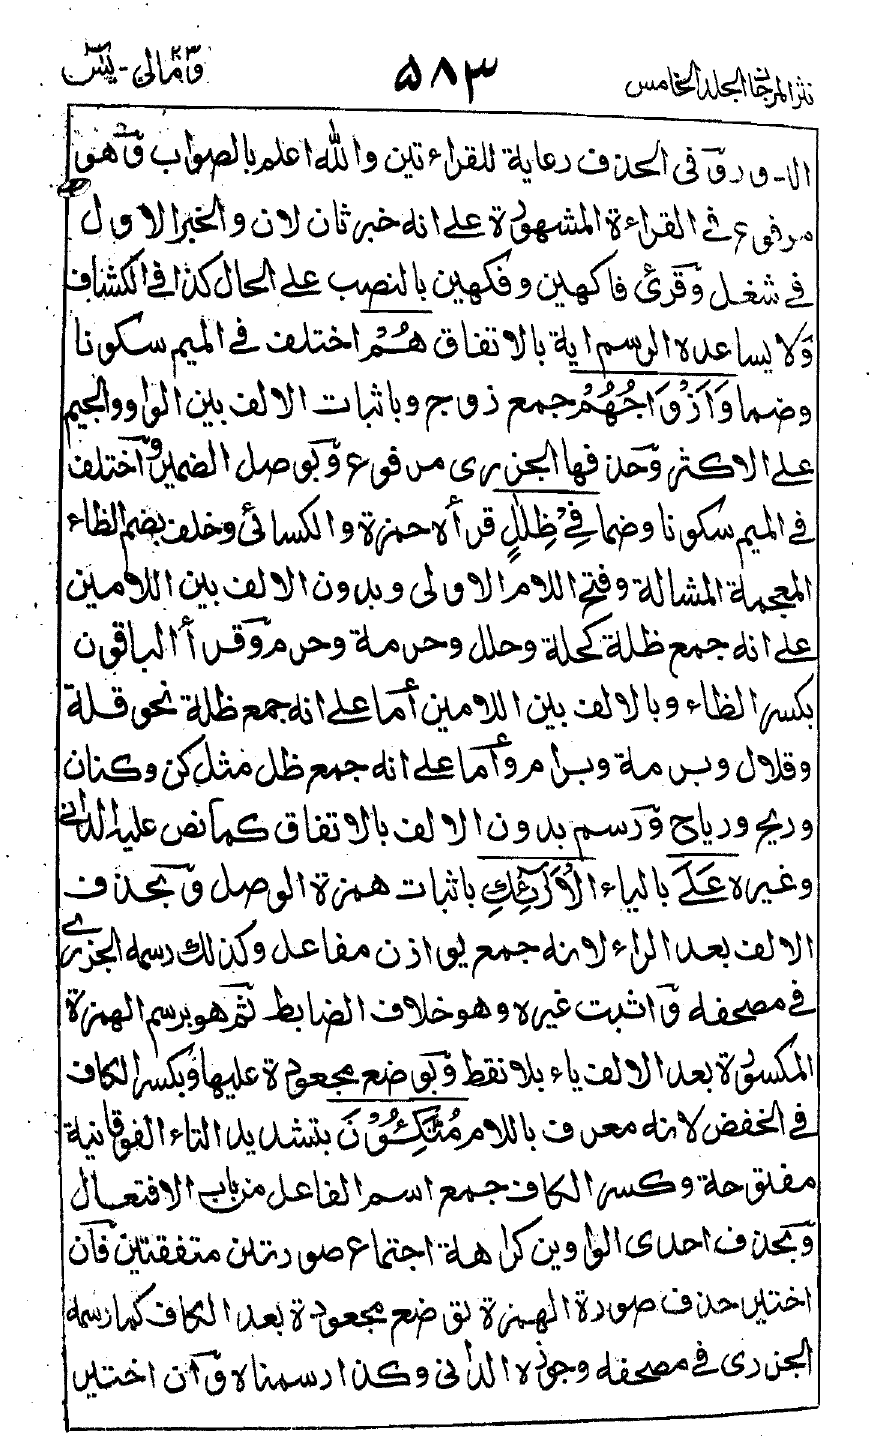 نثر المرجان المجلد الخامس ۵۸۳ ومالی ۲۳ - یٰسٓ
الا ورق فی الحذف رعایة للقراءتین والله اعلم بالصواب وهو
مرفوع فی القراءة المشهورة علی انه خبر ثان لان والخبر الاول
فی شغل وقرئ فاکهین وفکهین بالنصب علی الحال کذا فی الکشاف
ولا یساعده الرسم ایة بالاتفاق هُمْ اختلف فی المیم سکونا
وضما وَاَزْوَاجُهُمْ جمع زوج وباثبات الالف بین الواو والجیم
علی الاکثر وحذفها الجزری مرفوع وبوصل الضمیر واختلف
فی المیم سکونا وضما فِیْ ظِلٰلٍ قرأه حمزة والکسائی وخلف بضم الظاء
المعجمة المشالة وفتح اللام الاولی وبدون الالف بین اللامین
علی انه جمع ظلة کحلة وحلل وحرمة وحرم وقرأ الباقون
بکسر الظاء وبالالف بین اللامین أما علی انه جمع ظلة نحو قلة
وقلال وبرمة وبرام وأما علی انه جمع ظل مثل کن وکنان
وریح وریاح ورسم بدون الالف بالاتفاق کما نص علیه الدانی
وغیره عَلَی بالیاء الْاَرَآئِكِ باثبات همزة الوصل وبحذف
الالف بعد الراء لانه جمع یوازن مفاعل وکذلك رسمه الجزری
فی مصحفه واثبت غیره وهو خلاف الضابط ثم هو برسم الهمزة
المکسورة بعد الالف یاء بلا نقط وبوضع مجعودة علیها وبکسر الکاف
فی الخفض لانه معرف باللام مُتَّکِـُٔوْنَ بتشدید التاء الفوقانیة
مفتوحة وکسر الکاف جمع اسم الفاعل من باب الافتعال
وبحذف احدی الواوین کراهة اجتماع صورتین متفقتین فان
اختیر حذف صورة الهمزة توضع مجعودة بعد الکاف کما رسمه
الجزری فی مصحفه وجوزه الدانی وکذا رسمناه وان اختیر